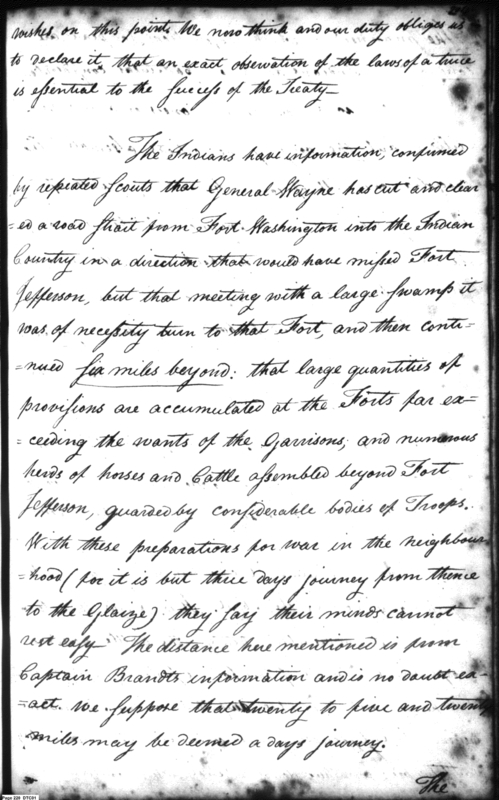 wishes on this point. We now think and our duty obliges us
to declare it, that an exact observation of the laws of a truce
is essential to the success of the Treaty—
The Indians have information, confirmed
by repeated scouts that General Wayne has cut and clear
=ed a road strait from Fort Washington into the Indian
Country in a direction that would have missed Fort
Jefferson, but that meeting with a large swamp it
was, of necessity turn to that Fort, and then conti-
=nued six miles beyond: that large quantities of
provisions are accumulated at the Forts far ex=
=ceeding the wants of the Garrisons; and numerous
herds of horses and Cattle assembled beyond Fort
Jefferson, guarded by considerable bodies of Troops.
With these preparations for war in the neighbour
=hood (for it is but three days journey from thence
to the Glaize) they say their minds cannot
rest easy. The distance here mentioned is from
Captain Brandts information and is no doubt ex-
=act. We suppose that twenty to five and twenty
miles may be deemed a days journey.
The
Page 226 DTC01